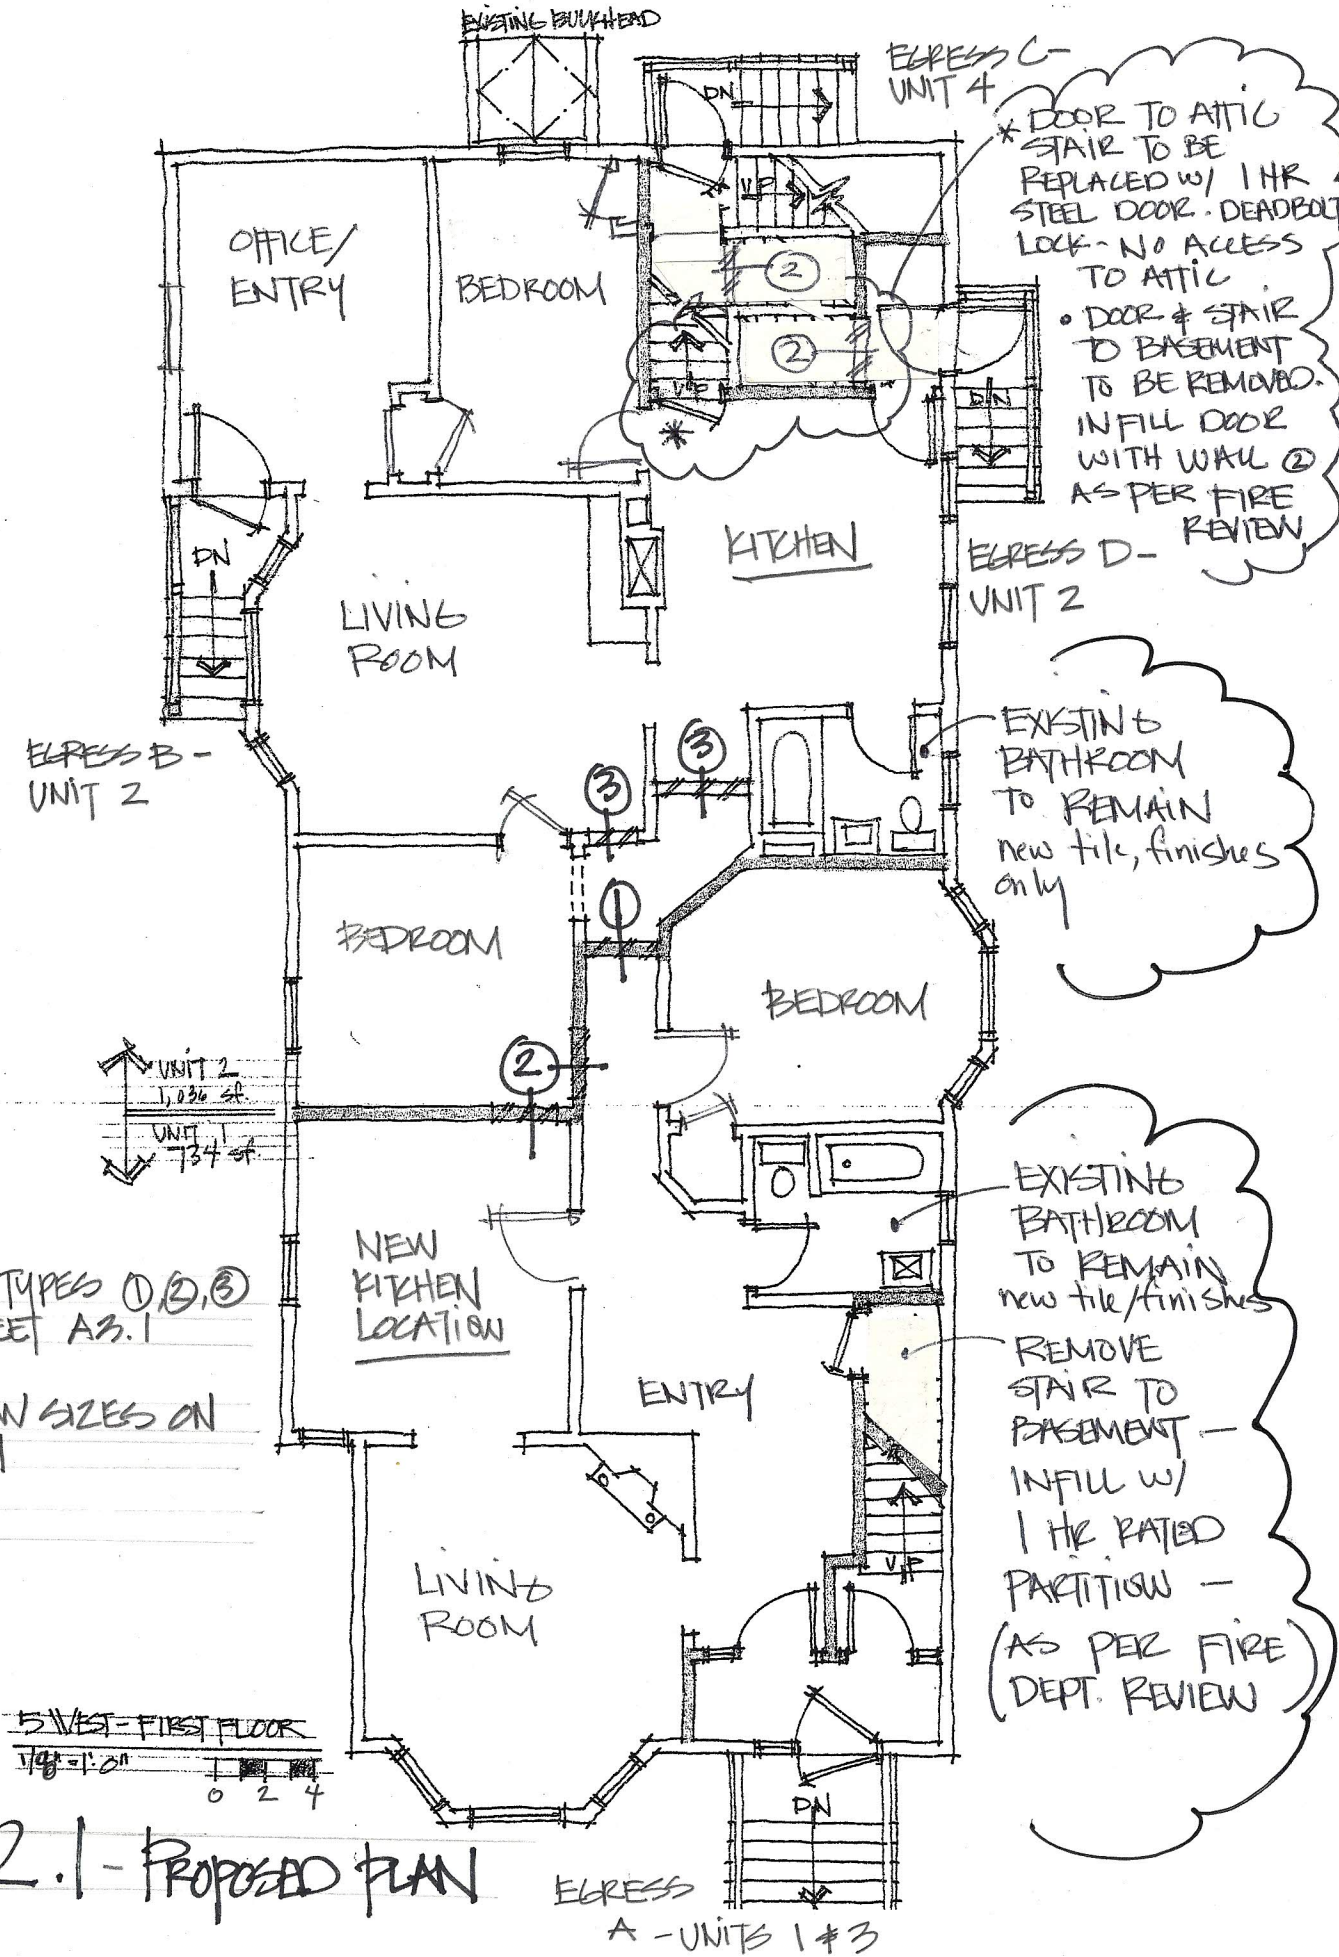 EXISTING BULKHEAD
EGRESS C-
UNIT 4
DN
* DOOR TO ATTIC
STAIR TO BE
REPLACED W/ 1 HR
STEEL DOOR. DEADBOLT
LOCK - NO ACCESS
TO ATTIC
• DOOR & STAIR
TO BASEMENT
TO BE REMOVED.
INFILL DOOR
WITH WALL ②
AS PER FIRE
REVIEW
UP
OFFICE/
ENTRY
BEDROOM
②
②
UP
*
DN
KITCHEN
EGRESS D-
UNIT 2
DN
LIVING
ROOM
EGRESS B-
UNIT 2
③
③
EXISTING
BATHROOM
TO REMAIN
new tile, finishes
only
①
BEDROOM
BEDROOM
②
UNIT 2
1,036 sf.
UNIT 1
734 sf
EXISTING
BATHROOM
TO REMAIN
new tile/finishes
NEW
KITCHEN
LOCATION
TYPES ①,②,③
EET A3.1
REMOVE
STAIR TO
BASEMENT -
INFILL W/
1 HR RATED
PARTITION -
(AS PER FIRE
DEPT. REVIEW)
ENTRY
W SIZES ON
UP
LIVING
ROOM
5 WEST - FIRST FLOOR
1/8"=1'-0"
0 2 4
DN
2.1 - PROPOSED PLAN
EGRESS
A - UNITS 1 & 3